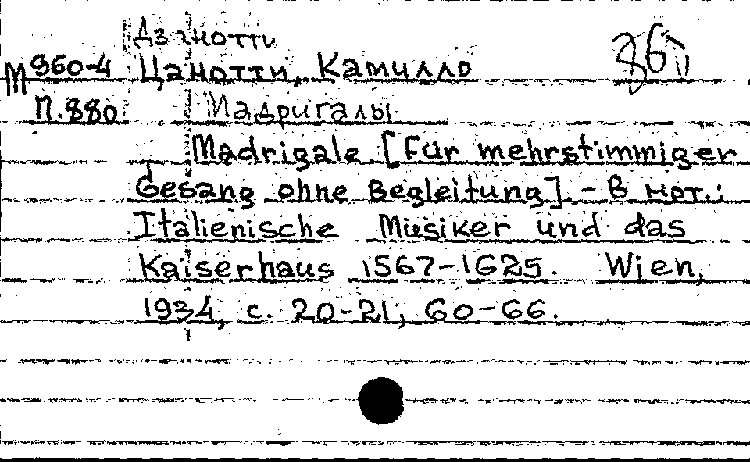 Дзанотти
М960-4 Цанотти, Камилло
П.880. Мадригалы
Madrigale [für mehrstimmiger
Gesang ohne Begleitung]. - В нот.:
Italienische Musiker und das
Kaiserhaus 1567-1625. Wien,
1934, с. 20-21, 60-66.